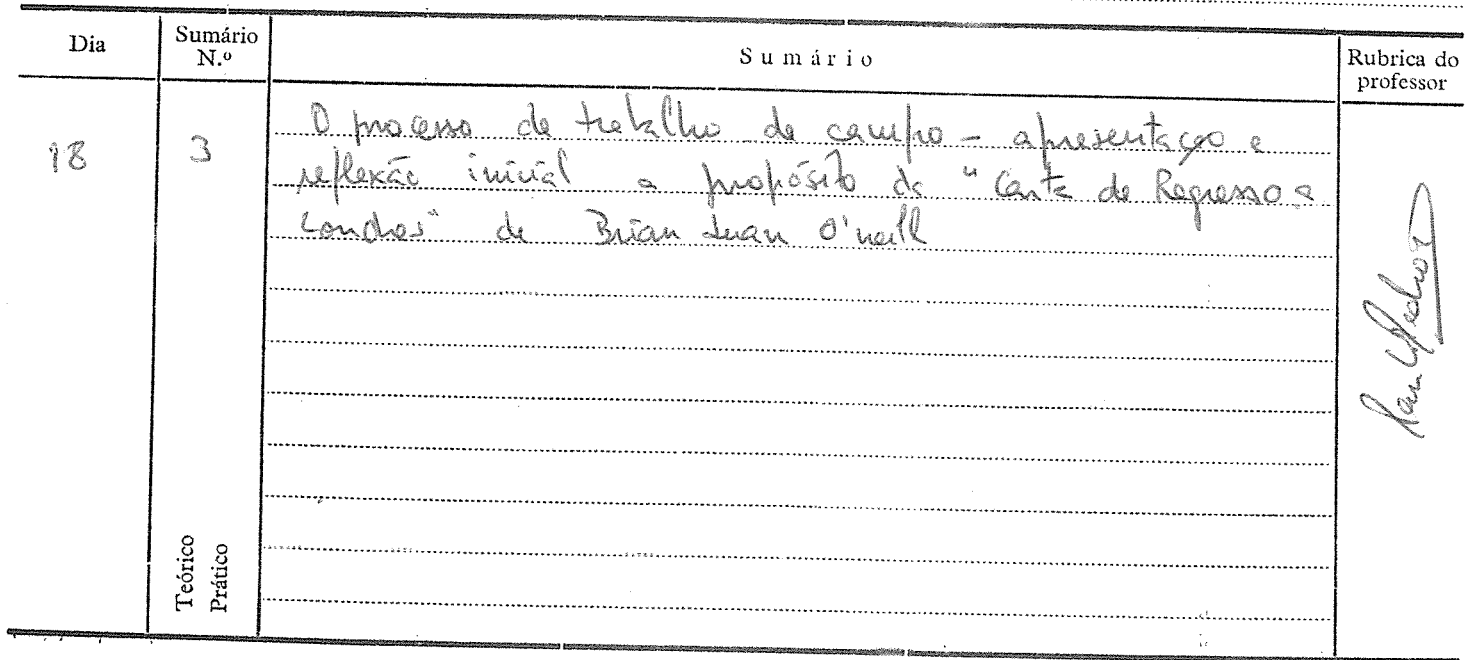 Dia
Sumário N.º
Sumário
Rubrica do professor
18
3
O processo de trabalho de campo – apresentação e
reflexão inicial a propósito da "Carta de Regresso a
Londres" de Brian Juan O'neill
Teórico
Prático